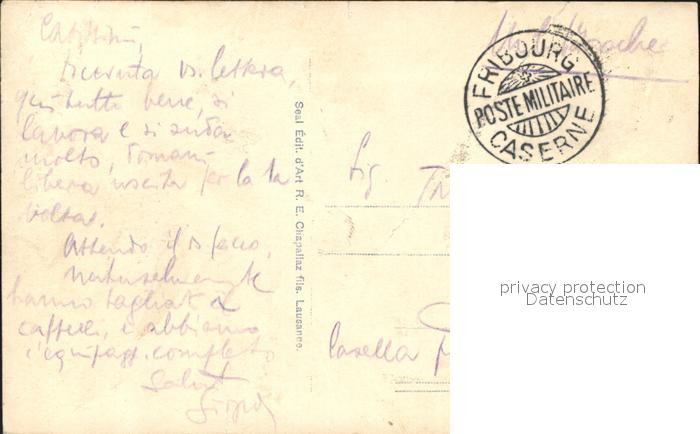 Carissimi,
Ricevuta vs. lettera,
qui tutto bene, si
lavora e si suda
molto, domani
libera uscita per la 1a
volta.
Attendo il vs pacco,
naturalmente
hanno tagliato i
capelli, e abbiamo
l'equipagg. completo
Saluti
Seal Édit. d'Art R. E. Chapallaz fils. Lausanne.
FRIBOURG
POSTE MILITAIRE
CASERNE
Sig.
Casella
privacy protection
Datenschutz